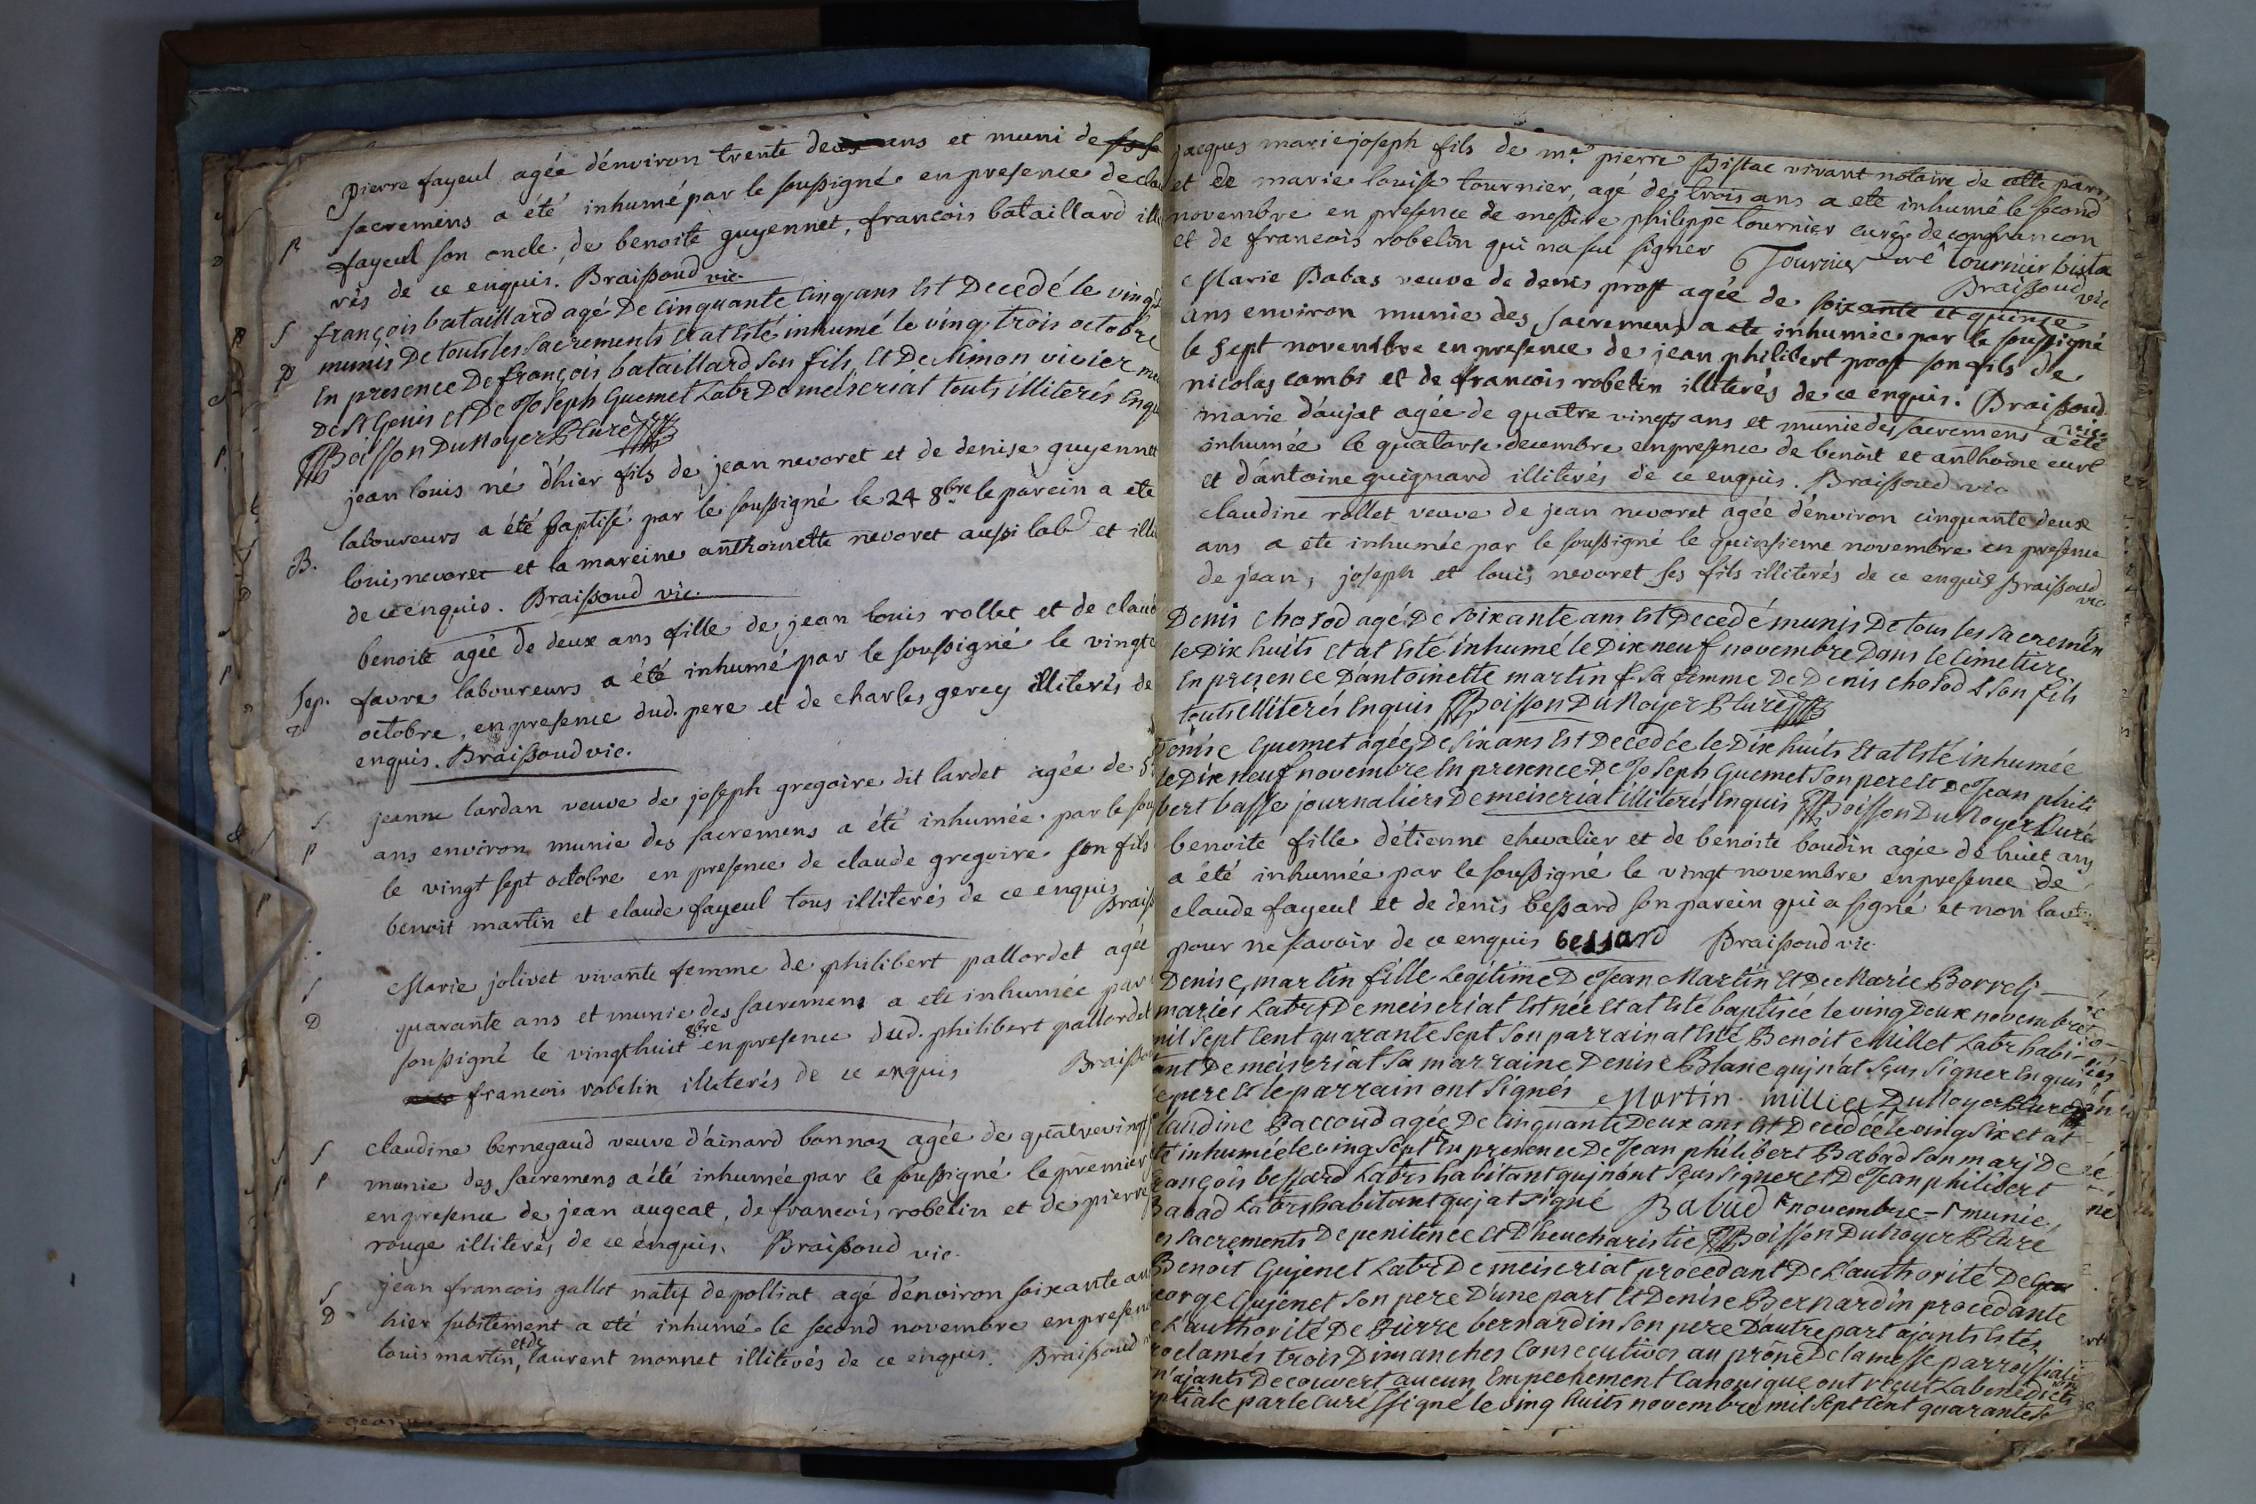 pierre fayeul agée d'énviron trente deux ans et muni de
sacremens a été inhumé par le soussigné en presence de
fayeul son oncle, de benoite guyennet, francois bataillard
rés de ce enquis. Braissoud vic.
françois bataillard agé De Cinquante Cinq ans Est Decedé le
munis De touts les Sacrements Et at Esté inhumé le ving trois octobre
En presence De françois bataillard son fils, Et De Simon vivier
De St Genis Et De Joseph Guemet Labr De meiseriat touts illiterés
Boisson DuNoyer Curé
jean louis né d'hier fils de jean nevoret et de denise guyennet
laboureurs a été baptisé par le soussigné le 24 8bre le parein a ete
B. louis nevoret et la mareine anthoinette nevoret aussi labr et
de ce enquis. Braissoud vic.
benoite agée de deux ans fille de jean louis rollet et de
Sep. favre laboureurs a été inhumé par le soussigné le
octobre, en presence dud. pere et de charles gerey illiterés de
enquis. Braissoud vic.
S jeanne lardan veuve de joseph gregoire dit lardet agée de
P ans environ munie des sacremens a été inhumée par le
le vingt sept octobre en presence de claude gregoire son fils
benoit martin et claude fayeul tous illiterés de ce enquis
S Marie jolivet vivante femme de philibert pallordet agée
D quarante ans et munie des sacremens a ete inhumée par
soussigné le vingthuit 8bre en presence dud. philibert pallordet
francois robelin illiterés de ce enquis
S claudine bernegaud veuve d'ainard bonnaz agée de
P munie des sacremens a été inhumée par le soussigné le premier
en presence de jean augeat, de francois robelin et de pierre
rouge illiterés de ce enquis. Braissoud vic.
S jean francois gallot natif de polliat agé d'énviron soixante
D hier subitement a eté inhumé le second novembre en
louis martin, et de laurent monnet illiterés de ce enquis. Braissoud
jacques marie joseph fils de me pierre Bistac vivant notaire de cette
et de marie louise tournier, agé de trois ans a eté inhumé le second
novembre en presence de messire philippe tournier curé de
et de francois robelin qui na su signer Tournier
Braissoud vic
Marie Babas veuve de denis prost agée de soixante et quinse
ans environ munie des sacremens a ete inhumée par le soussigné
le sept novembre en presence de jean philibert prost son fils de
nicolas combe et de francois robelin illiterés de ce enquis. Braissoud vic.
marie d'aujat agée de quatre vingts ans et munie des sacremens a été
inhumée le quatorse decembre en presence de benoit et anthoine
et d'antoine guignard illiterés de ce enquis. Braissoud vic
claudine rollet veuve de jean nevoret agée d'énviron cinquante deux
ans a ete inhumée par le soussigné le quinsieme novembre en presence
de jean, joseph et louis nevoret ses fils illiterés de ce enquis Braissoud vic
Denis Chosod agé De soixante ans Est Decedé munis De tous les
le Dix huits Et at Esté inhumé le Dix neuf novembre Dans le Cimetiere
En presence D'antoinette martin sa femme De Denis chosod son fils
touts illiterés Enquis Boisson DuNoyer Curé
Denise Guemet agée De Six ans Est Decedée le Dix huits Et at Esté inhumée
le Dix neuf novembre En presence De Joseph Guemet Son pere Et De Jean phili
bert basse journaliers De meiseriat illiterés Enquis Boisson DuNoyer Curé
benoite fille d'étienne chevalier et de benoite boudin agée de huict ans
a été inhumée par le soussigné le vingt novembre en presence de
claude fayeul et de denis bessard son parein qui a signé et non
pour ne savoir de ce enquis bessard Braissoud vic
Denise martin fille Legitime De Jean Martin Et De Marie Borrelj
mariés Labrs De meiseriat Est née Et at Esté baptisée le ving Deux novembre
mil Sept Cent quarante Sept Son parrain at Esté Benoit Millet Labr habi-
ant De meiseriat Sa marraine Denise Blanc quj n'at sçus signer Enquis
pere Et le parrain ont Signés Martin millet DuNoyer Curé
laudine Baccoud agée De Cinquante Deux ans Est Decedée le ving Six et at
té inhumée le ving Sept En presence De Jean philibert Babad Son marj De
ançois bessard Labrs habitant quj n'ont sçus signer et De Jean philibert
Babad Labr habitant quj at signé Babad novembre munie,
es sacrements De penitence Et D'heucharistie Boisson DuNoyer Curé
Benoit Gujenet Labr De meiseriat procedant De L'authorité De
eorge Gujenet Son pere D'une part Et Denise Bernardin procedante
L'authorité De Pierre bernardin Son pere D'autre part ajants Estés
oclamés trois Dimanches Consecutives au prône De la messe parroissiale
n'ajants Decouvert aucun Empechement Canonique ont reçut La
ptiale par le Curé ssigné le ving huits novembre mil Sept Cent